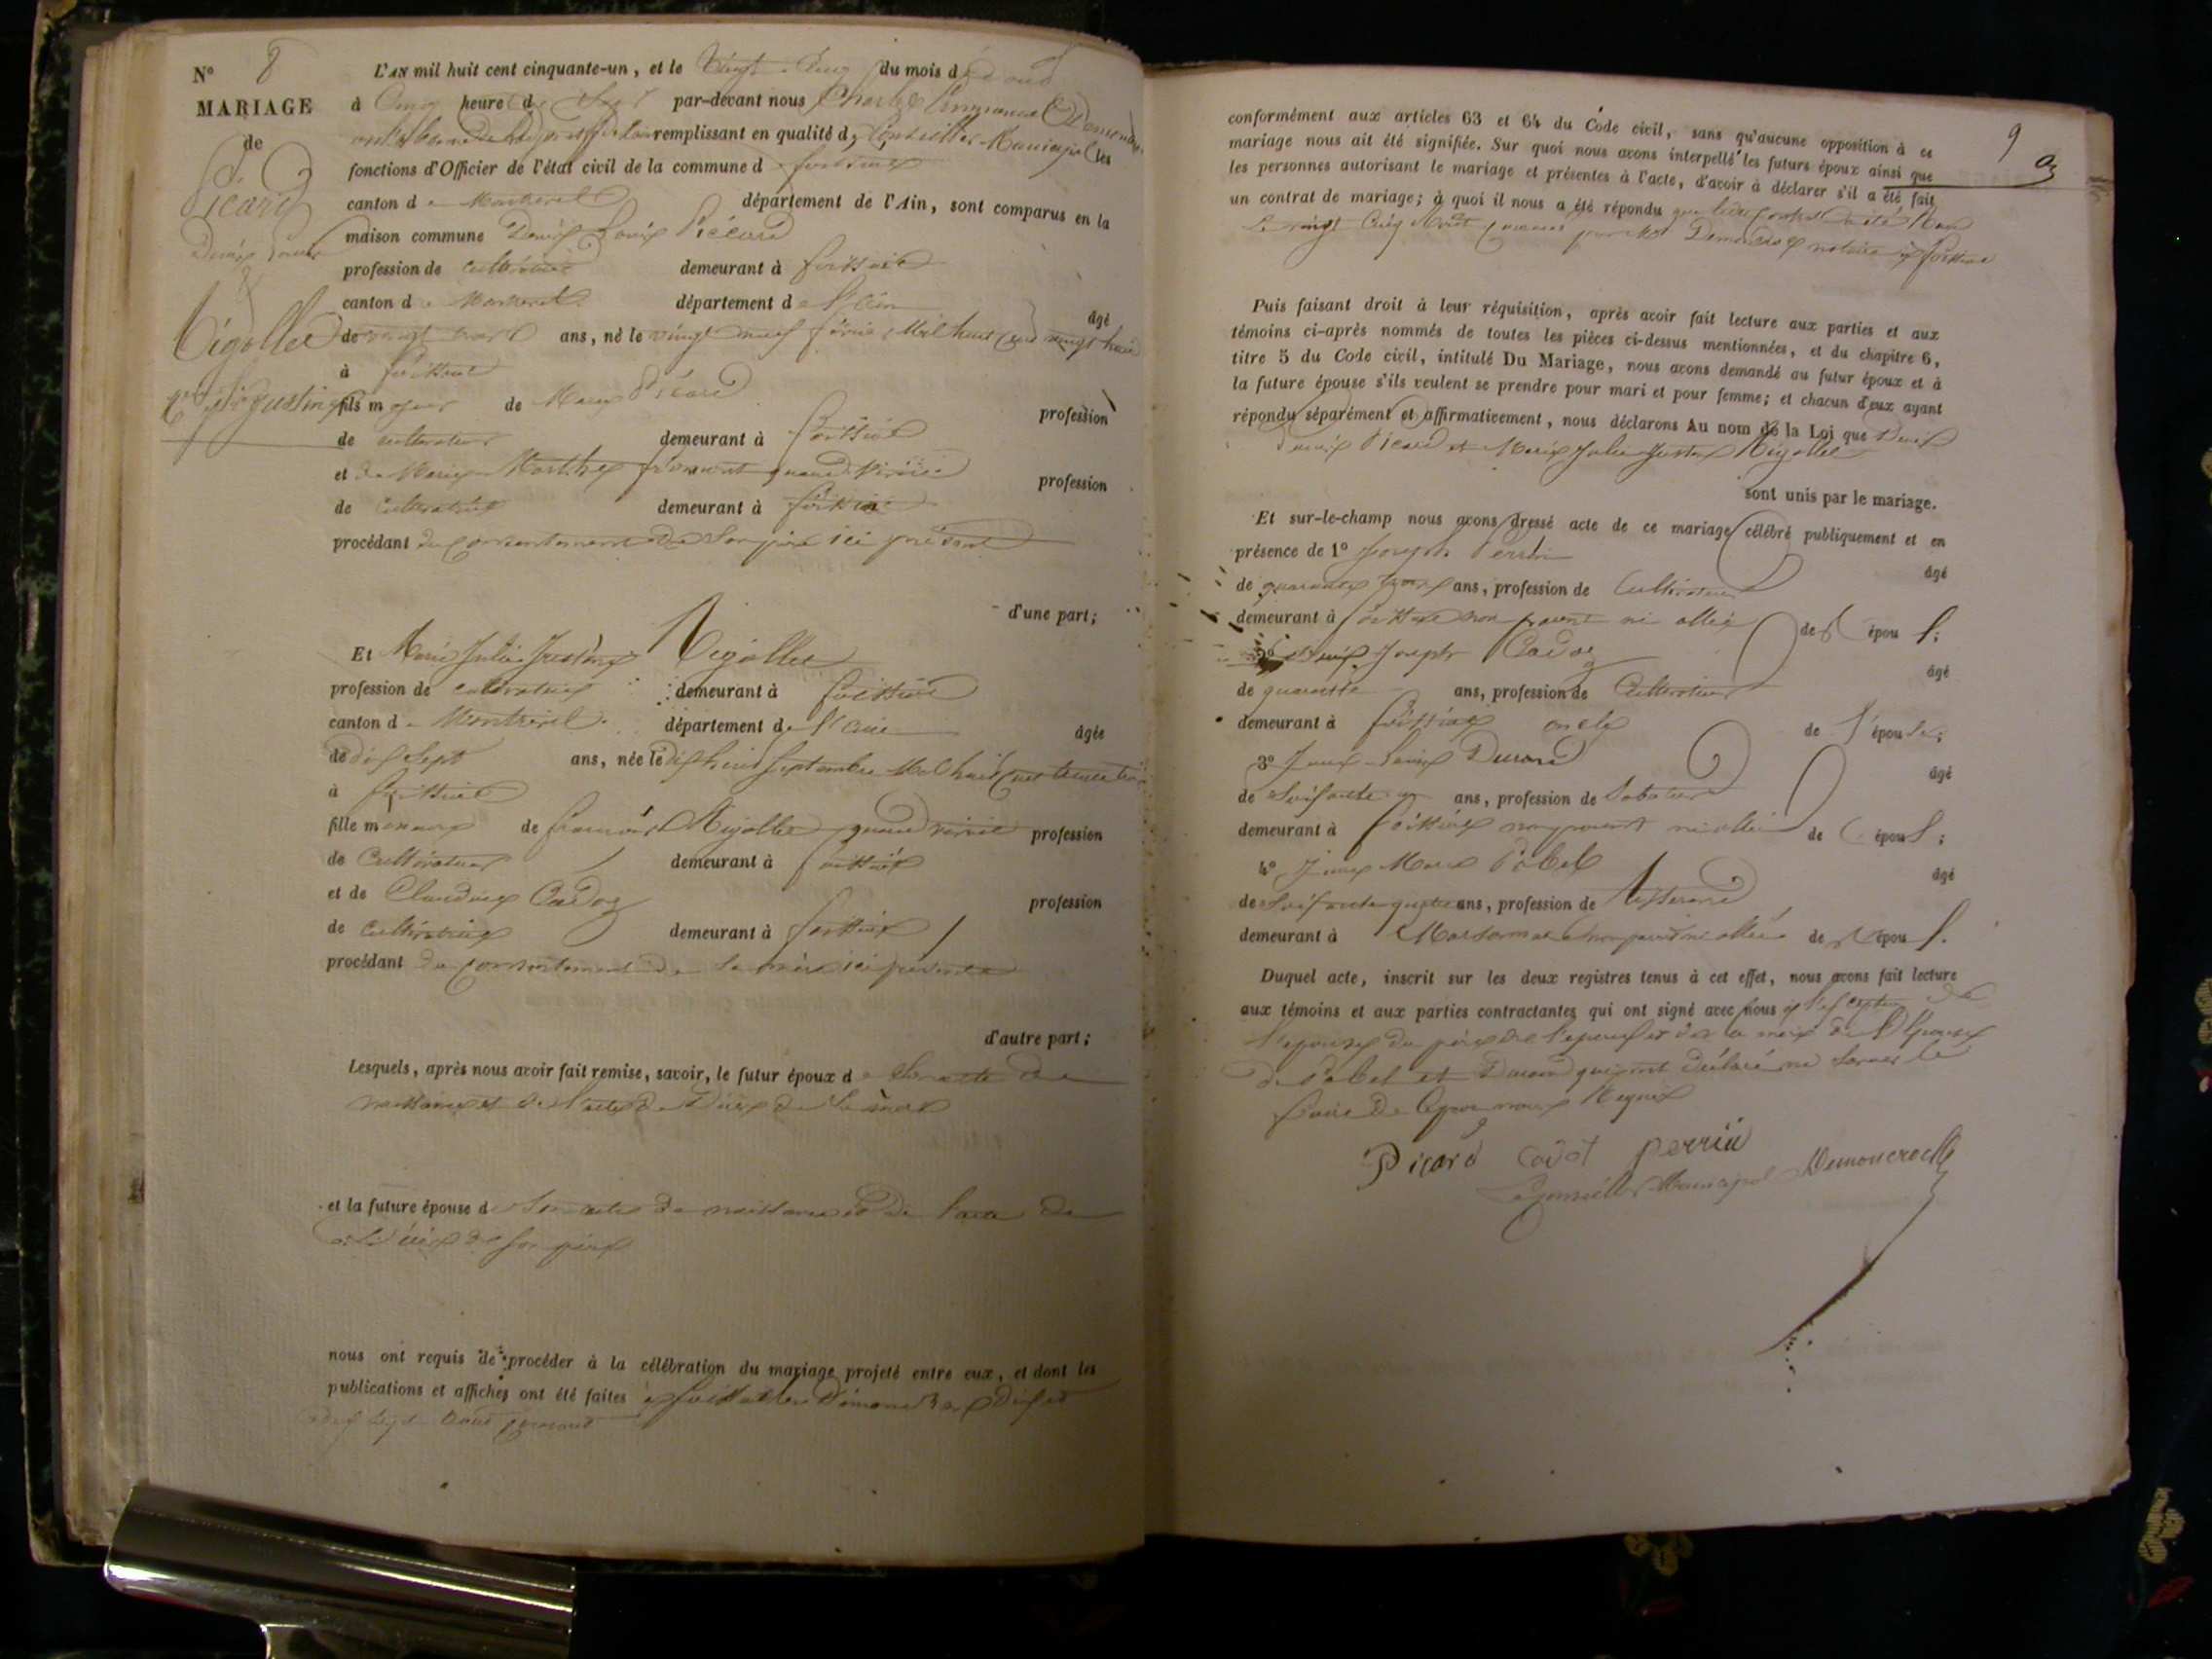 N° 8
MARIAGE
de
Picard
Denis Louis
&
Rigollet
L'AN mil huit cent cinquante-un, et le vingt-cinq du mois d'août
à cinq heure du soir par-devant nous Charles
remplissant en qualité de Conseiller Municipal les
fonctions d'Officier de l'état civil de la commune de foissiat
canton de Montrevel département de l'Ain, sont comparus en la
maison commune Denis Louis Picard
profession de cultivateur demeurant à foissiat
canton de Montrevel département de l'ain âgé
de vingt trois ans, né le vingt neuf février Mil huit cent vingt huit
à foissiat
fils majeur de Picard profession
de cultivateur demeurant à foissiat
et de Marie Marthe quand vivait profession
de cultivatrice demeurant à foissiat
procédant du consentement de son père ici présent
d'une part;
Et Marie Julie Justine Rigollet
profession de cultivatrice demeurant à foissiat
canton de Montrevel département de l'ain âgée
de dix sept ans, née le dix huit septembre Mil huit cent trente trois
à foissiat
fille mineure de Rigollet quand vivait profession
de cultivateur demeurant à foissiat
et de Claudine Cadoz profession
de cultivatrice demeurant à foissiat
procédant du consentement de sa mère ici présente
d'autre part;
Lesquels, après nous avoir fait remise, savoir, le futur époux de son acte de
naissance et de l'acte de décès de sa mère
et la future épouse de son acte de naissance et de l'acte de
décès de son père
nous ont requis de procéder à la célébration du mariage projeté entre eux, et dont les
publications et affiches ont été faites à foissiat les Dimanches dix et
dix sept août courant
9
conformément aux articles 63 et 64 du Code civil, sans qu'aucune opposition à ce
mariage nous ait été signifiée. Sur quoi nous avons interpellé les futurs époux ainsi que
les personnes autorisant le mariage et présentes à l'acte, d'avoir à déclarer s'il a été fait
un contrat de mariage; à quoi il nous a été répondu que
le vingt cinq août par notaire à foissiat
Puis faisant droit à leur réquisition, après avoir fait lecture aux parties et aux
témoins ci-après nommés de toutes les pièces ci-dessus mentionnées, et du chapitre 6,
titre 5 du Code civil, intitulé Du Mariage, nous avons demandé au futur époux et à
la future épouse s'ils veulent se prendre pour mari et pour femme; et chacun d'eux ayant
répondu séparément et affirmativement, nous déclarons Au nom de la Loi que Denis
Louis Picard et Marie Julie Justine Rigollet
sont unis par le mariage.
Et sur-le-champ nous avons dressé acte de ce mariage célébré publiquement et en
présence de 1° Joseph Perrin âgé
de quarante trois ans, profession de Cultivateur
demeurant à foissiat non parent ni allié des épou s;
2° Joseph Cadoz âgé
de quarante ans, profession de Cultivateur
demeurant à foissiat oncle de l'épouse;
3° Louis Durand âgé
de Soixante ans, profession de Sabotier
demeurant à foissiat non parent ni allié des épou s;
4° Marie Pobel âgé
de Soixante quatre ans, profession de tisserand
demeurant à Marsonnas non parent ni allié des épou s.
Duquel acte, inscrit sur les deux registres tenus à cet effet, nous avons fait lecture
aux témoins et aux parties contractantes qui ont signé avec nous à l'exception de
l'épouse du père de l'époux et de la mère de l'épouse
de Pobel et Durand qui ont déclaré ne savoir le
faire de ce requis
Picard Cadot perrin
Le Conseiller Municipal